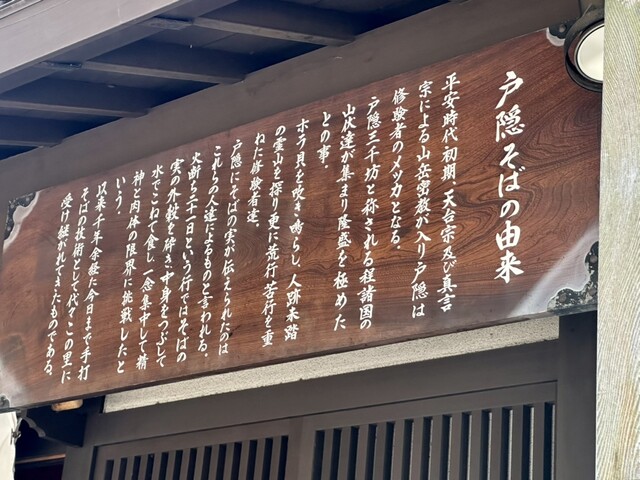 戸隠そばの由来
平安時代初期、天台宗及び真言
宗による山岳密教が入り戸隠は
修験者のメッカとなる。
戸隠三千坊と称される程諸国の
山伏達が集まり隆盛を極めた
との事。
ホラ貝を吹き鳴らし、人跡未踏
の霊山を探り更に荒行苦行を重
ねた修験者達。
戸隠にそばの実が伝えられたのは
これらの人達によるものと言われる。
火断ち三十一日という行ではそばの
実の外殻を砕き中身をつぶして
水でこねて食し一念集中して精
神と肉体の限界に挑戦したと
いう。
以来千年余経た今日まで手打
そばの技術として代々この里に
受け継がれてきたものである。